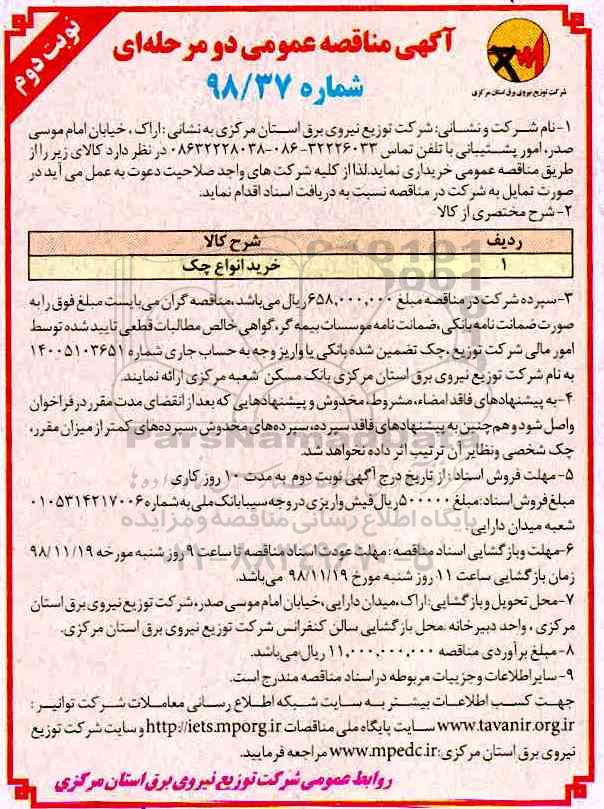 نوبت دوم
آگهی مناقصه عمومی دو مرحله‌ای
شماره ۹۸/۳۷
شرکت توزیع نیروی برق استان مرکزی
۱- نام شرکت و نشانی: شرکت توزیع نیروی برق استان مرکزی به نشانی: اراک، خیابان امام موسی
صدر، امور پشتیبانی با تلفن تماس ۳۲۲۲۶۰۳۳-۰۸۶-۰۸۶۳۲۲۲۸۰۳۸ در نظر دارد کالای زیر را از
طریق مناقصه عمومی خریداری نماید. لذا از کلیه شرکت های واجد صلاحیت دعوت به عمل می آید در
صورت تمایل به شرکت در مناقصه نسبت به دریافت اسناد اقدام نماید.
۲- شرح مختصری از کالا
ردیف شرح کالا
۱ خرید انواع جک
۳- سپرده شرکت در مناقصه مبلغ ۶۵۸,۰۰۰,۰۰۰ ریال می‌باشد، مناقصه گران می‌بایست مبلغ فوق را به
صورت ضمانت نامه بانکی، ضمانت نامه موسسات بیمه گر، گواهی خالص مطالبات قطعی تایید شده توسط
امور مالی شرکت توزیع، چک تضمین شده بانکی یا واریز وجه به حساب جاری شماره ۱۴۰۰۵۱۰۳۶۵۱
به نام شرکت توزیع نیروی برق استان مرکزی بانک مسکن شعبه مرکزی ارائه نمایند.
۴- به پیشنهادهای فاقد امضاء، مشروط، مخدوش و پیشنهادهایی که بعد از انقضای مدت مقرر در فراخوان
واصل شود و هم چنین به پیشنهادهای فاقد سپرده، سپرده‌های مخدوش، سپرده‌های کمتر از میزان مقرر،
چک شخصی و نظایر آن ترتیب اثر داده نخواهد شد.
۵- مهلت فروش اسناد: از تاریخ درج آگهی نوبت دوم به مدت ۱۰ روز کاری
مبلغ فروش اسناد: مبلغ ۵۰۰۰۰۰ ریال فیش واریزی در وجه سیبا بانک ملی به شماره ۰۱۰۵۳۱۴۲۱۷۰۰۶
شعبه میدان دارایی.
۶- مهلت و بازگشایی اسناد مناقصه: مهلت عودت اسناد مناقصه تا ساعت ۹ روز شنبه مورخه ۹۸/۱۱/۱۹
زمان بازگشایی ساعت ۱۱ روز شنبه مورخ ۹۸/۱۱/۱۹ می‌باشد.
۷- محل تحویل و بازگشایی: اراک، میدان دارایی، خیابان امام موسی صدر، شرکت توزیع نیروی برق استان
مرکزی، واحد دبیرخانه. محل بازگشایی سالن کنفرانس شرکت توزیع نیروی برق استان مرکزی.
۸- مبلغ برآوردی مناقصه ۱۱,۰۰۰,۰۰۰,۰۰۰ ریال می‌باشد.
۹- سایر اطلاعات و جزییات مربوطه در اسناد مناقصه مندرج است.
جهت کسب اطلاعات بیشتر به سایت شبکه اطلاع رسانی معاملات شرکت توانیر:
www.tavanir.org.ir سایت پایگاه ملی مناقصات http://iets.mporg.ir و سایت شرکت توزیع
نیروی برق استان مرکزی: www.mpedc.ir مراجعه فرمایید.
روابط عمومی شرکت توزیع نیروی برق استان مرکزی
ParsNamadData
پایگاه اطلاع رسانی مناقصه و مزایده
۰۲۱-۸۸۳۴۹۶۷۰-۵